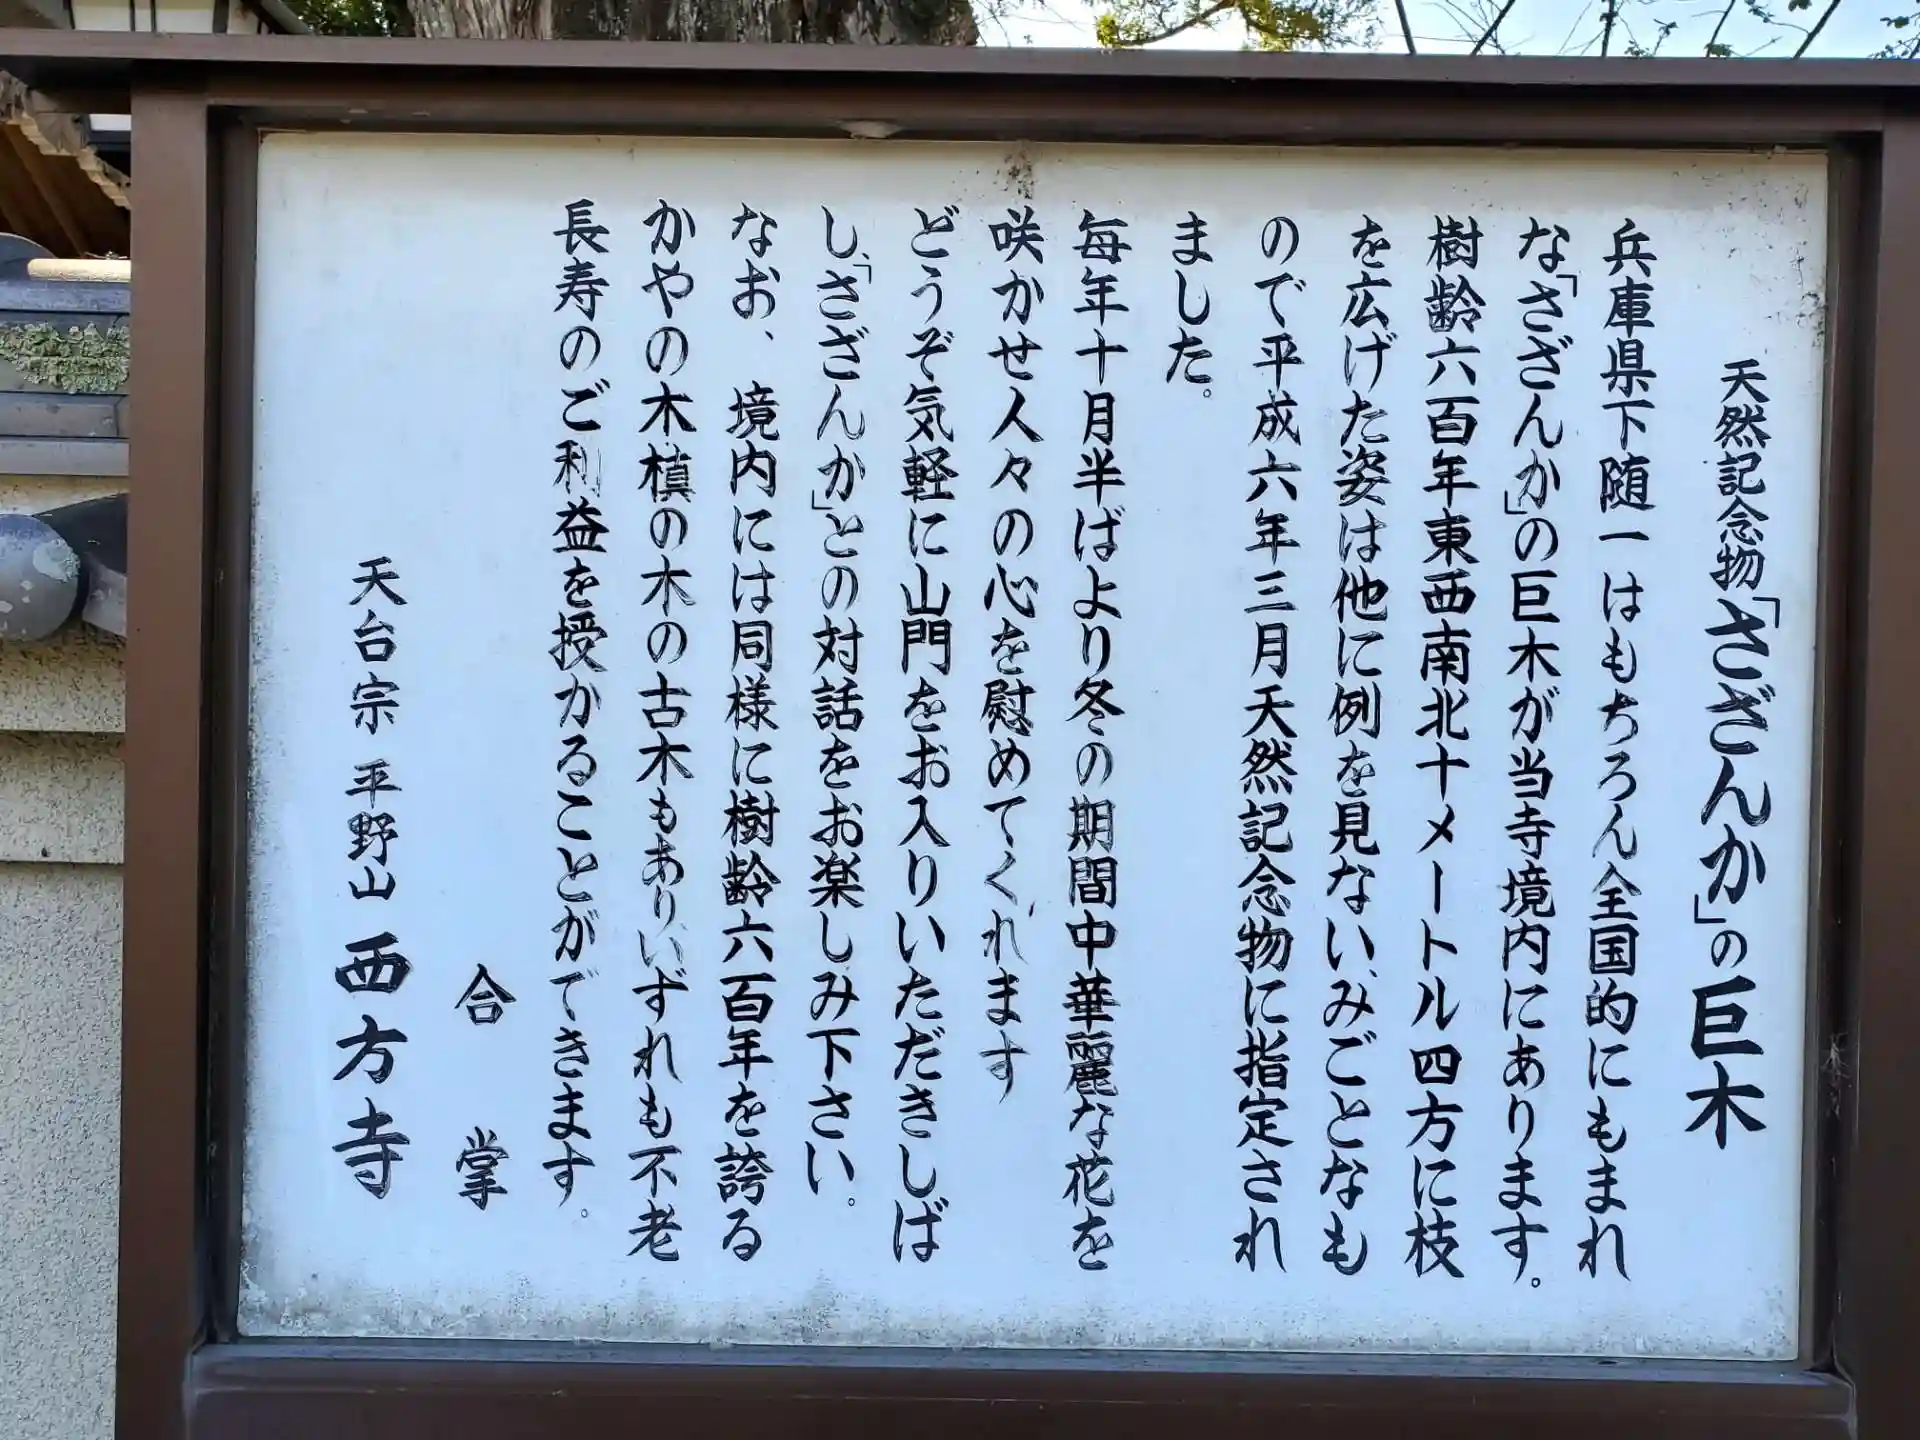 天然記念物「さざんか」の巨木
兵庫県下随一はもちろん全国的にもまれ
な「さざんか」の巨木が当寺境内にあります。
樹齢六百年東西南北十メートル四方に枝
を広げた姿は他に例を見ない、みごとなも
ので平成六年三月天然記念物に指定され
ました。
毎年十月半ばより冬の期間中華麗な花を
咲かせ人々の心を慰めてくれます
どうぞ気軽に山門をお入りいただきしば
し、「さざんか」との対話をお楽しみ下さい。
なお、境内には同様に樹齢六百年を誇る
かやの木槙の木の古木もありいずれも不老
長寿のご利益を授かることができます。
合掌
天台宗 平野山 西方寺